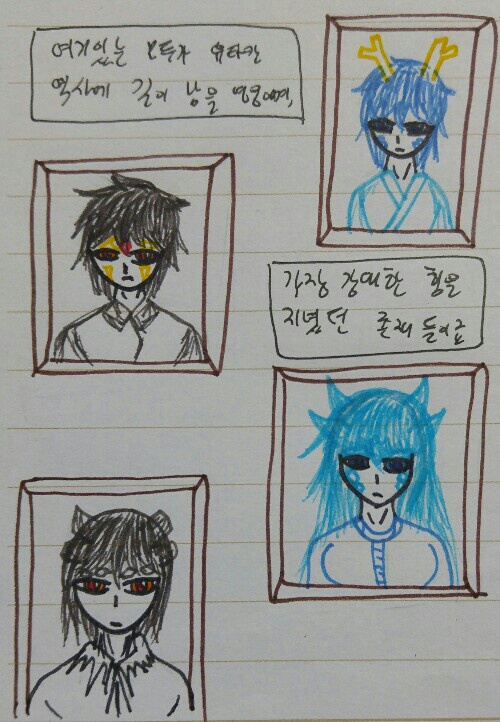 여기있는 모두가 유타칸
역사에 길이 남을 영웅이며,
가장 강대한 힘을
지녔던 존재들이죠